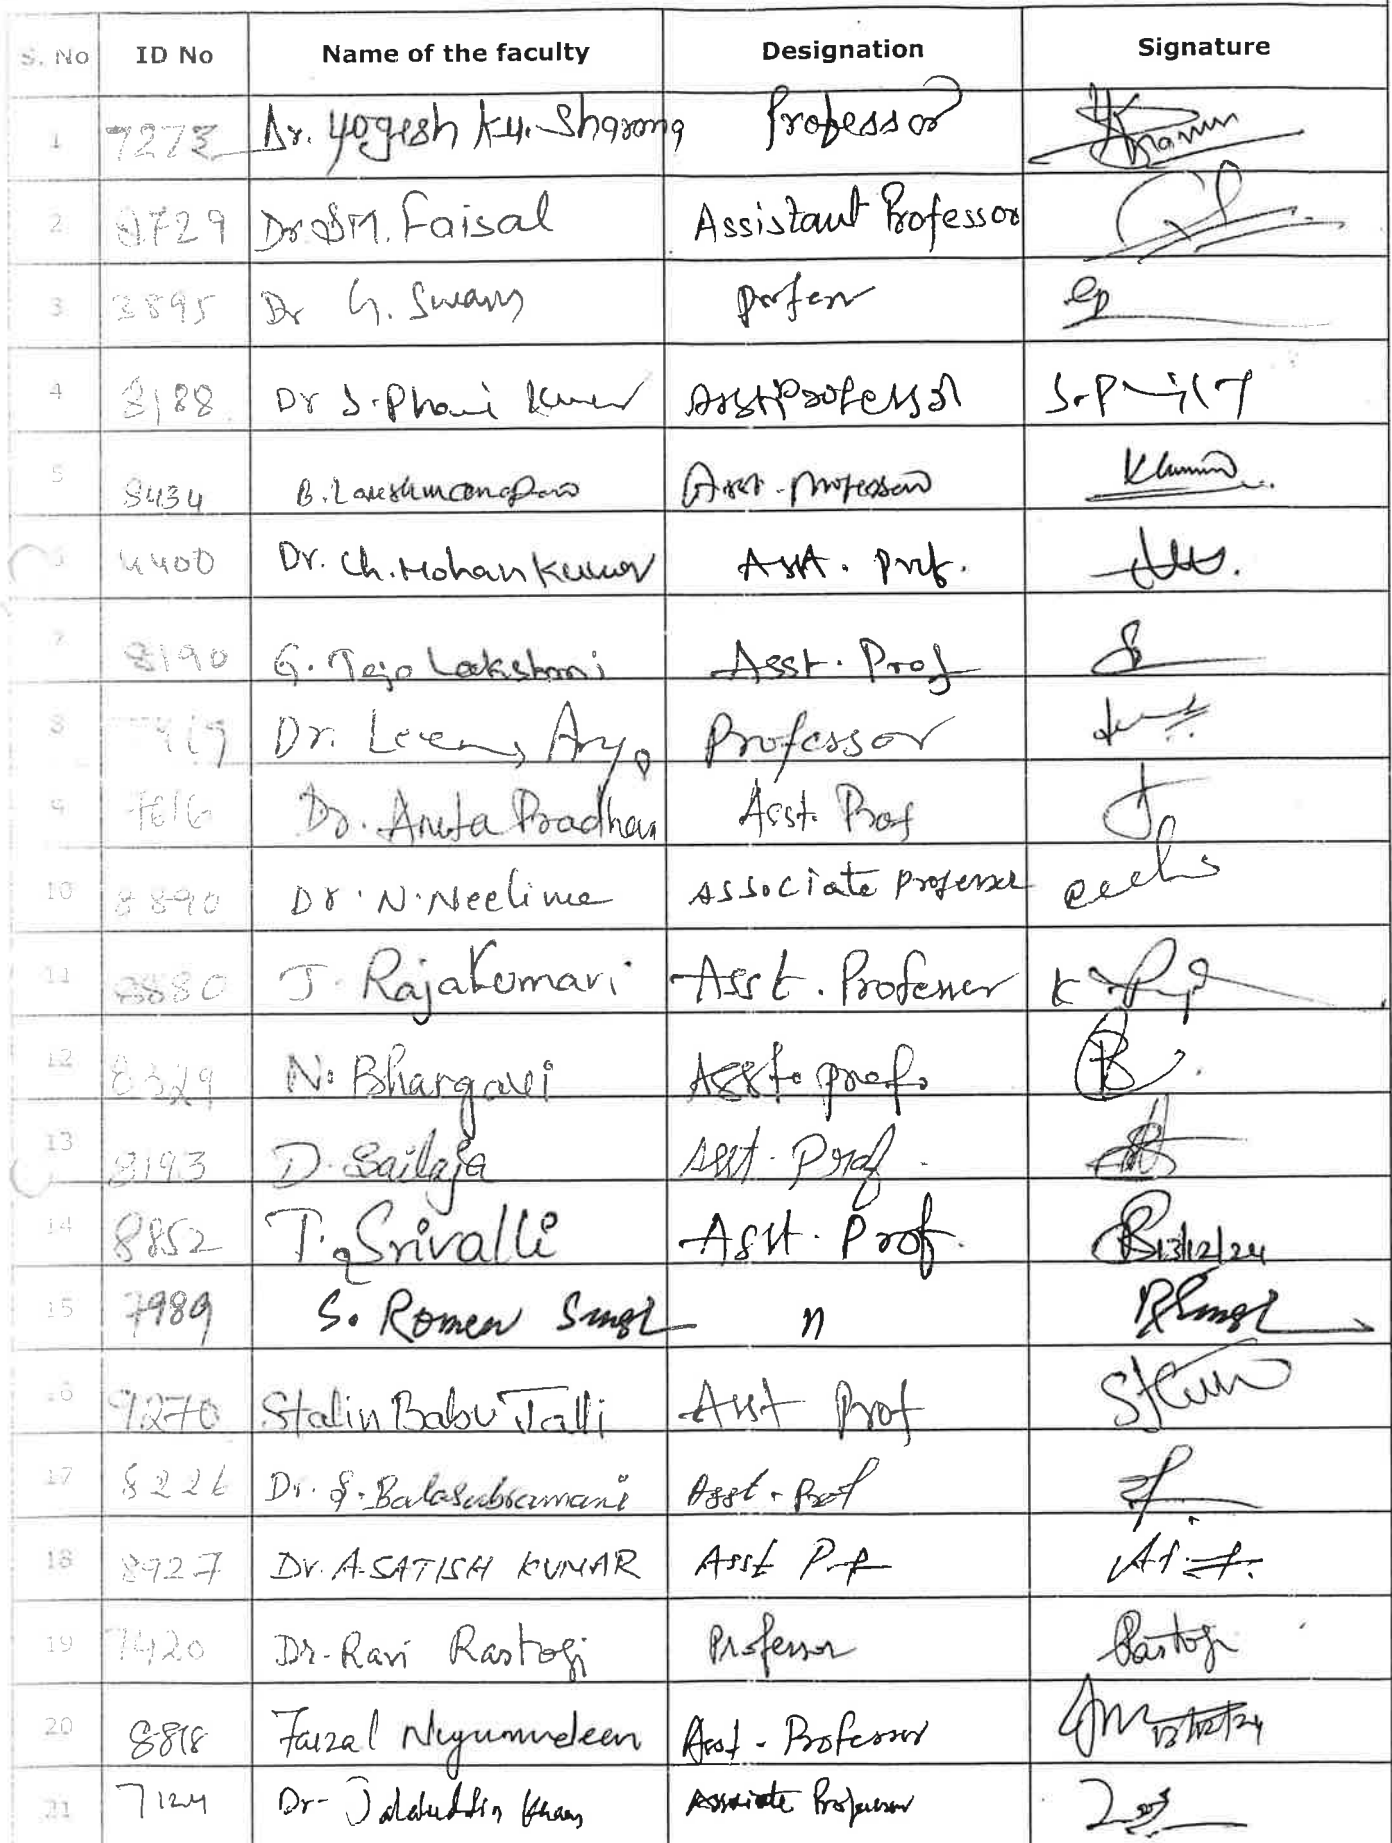 S. No ID No Name of the faculty Designation Signature
1 7273 Dr. Yogesh Ku. Sharma Professor
2 8729 Dr SM. Faisal Assistant Professor
3 3895 Dr G. Swamy Professor
4 8188 Dr S. Phani Kumar Asst Professor
5 8434 B. Laxshmanarao Asst. Professor
6 4400 Dr. Ch. Mohan Kumar Asst. Prof.
7 8190 G. Teja Lakshmi Asst. Prof
8 Dr. Leena Arya Professor
9 7616 Dr. Anita Pradhan Asst. Prof
10 8890 Dr. N. Neelima Associate Professor
11 8880 J. RajaKumari Asst. Professor
12 8329 N. Bhargavi Asst. prof.
13 8193 D. Sailaja Asst. Prof.
14 8852 T. Srivalli Asst. Prof. 13/12/24
15 7989 S. Romen Singh 11 RSingh
16 9270 Stalin Babu Talli Asst Prof
17 8226 Dr. S. Balasubramani Asst. Prof
18 8927 Dr. A. SATISH KUMAR Asst Prof
19 7420 Dr. Ravi Rastogi Professor Rastogi
20 8818 Faizal Nuyumudeen Asst. Professor 13/12/24
21 7124 Dr- Jalaluddin Khan Associate Professor